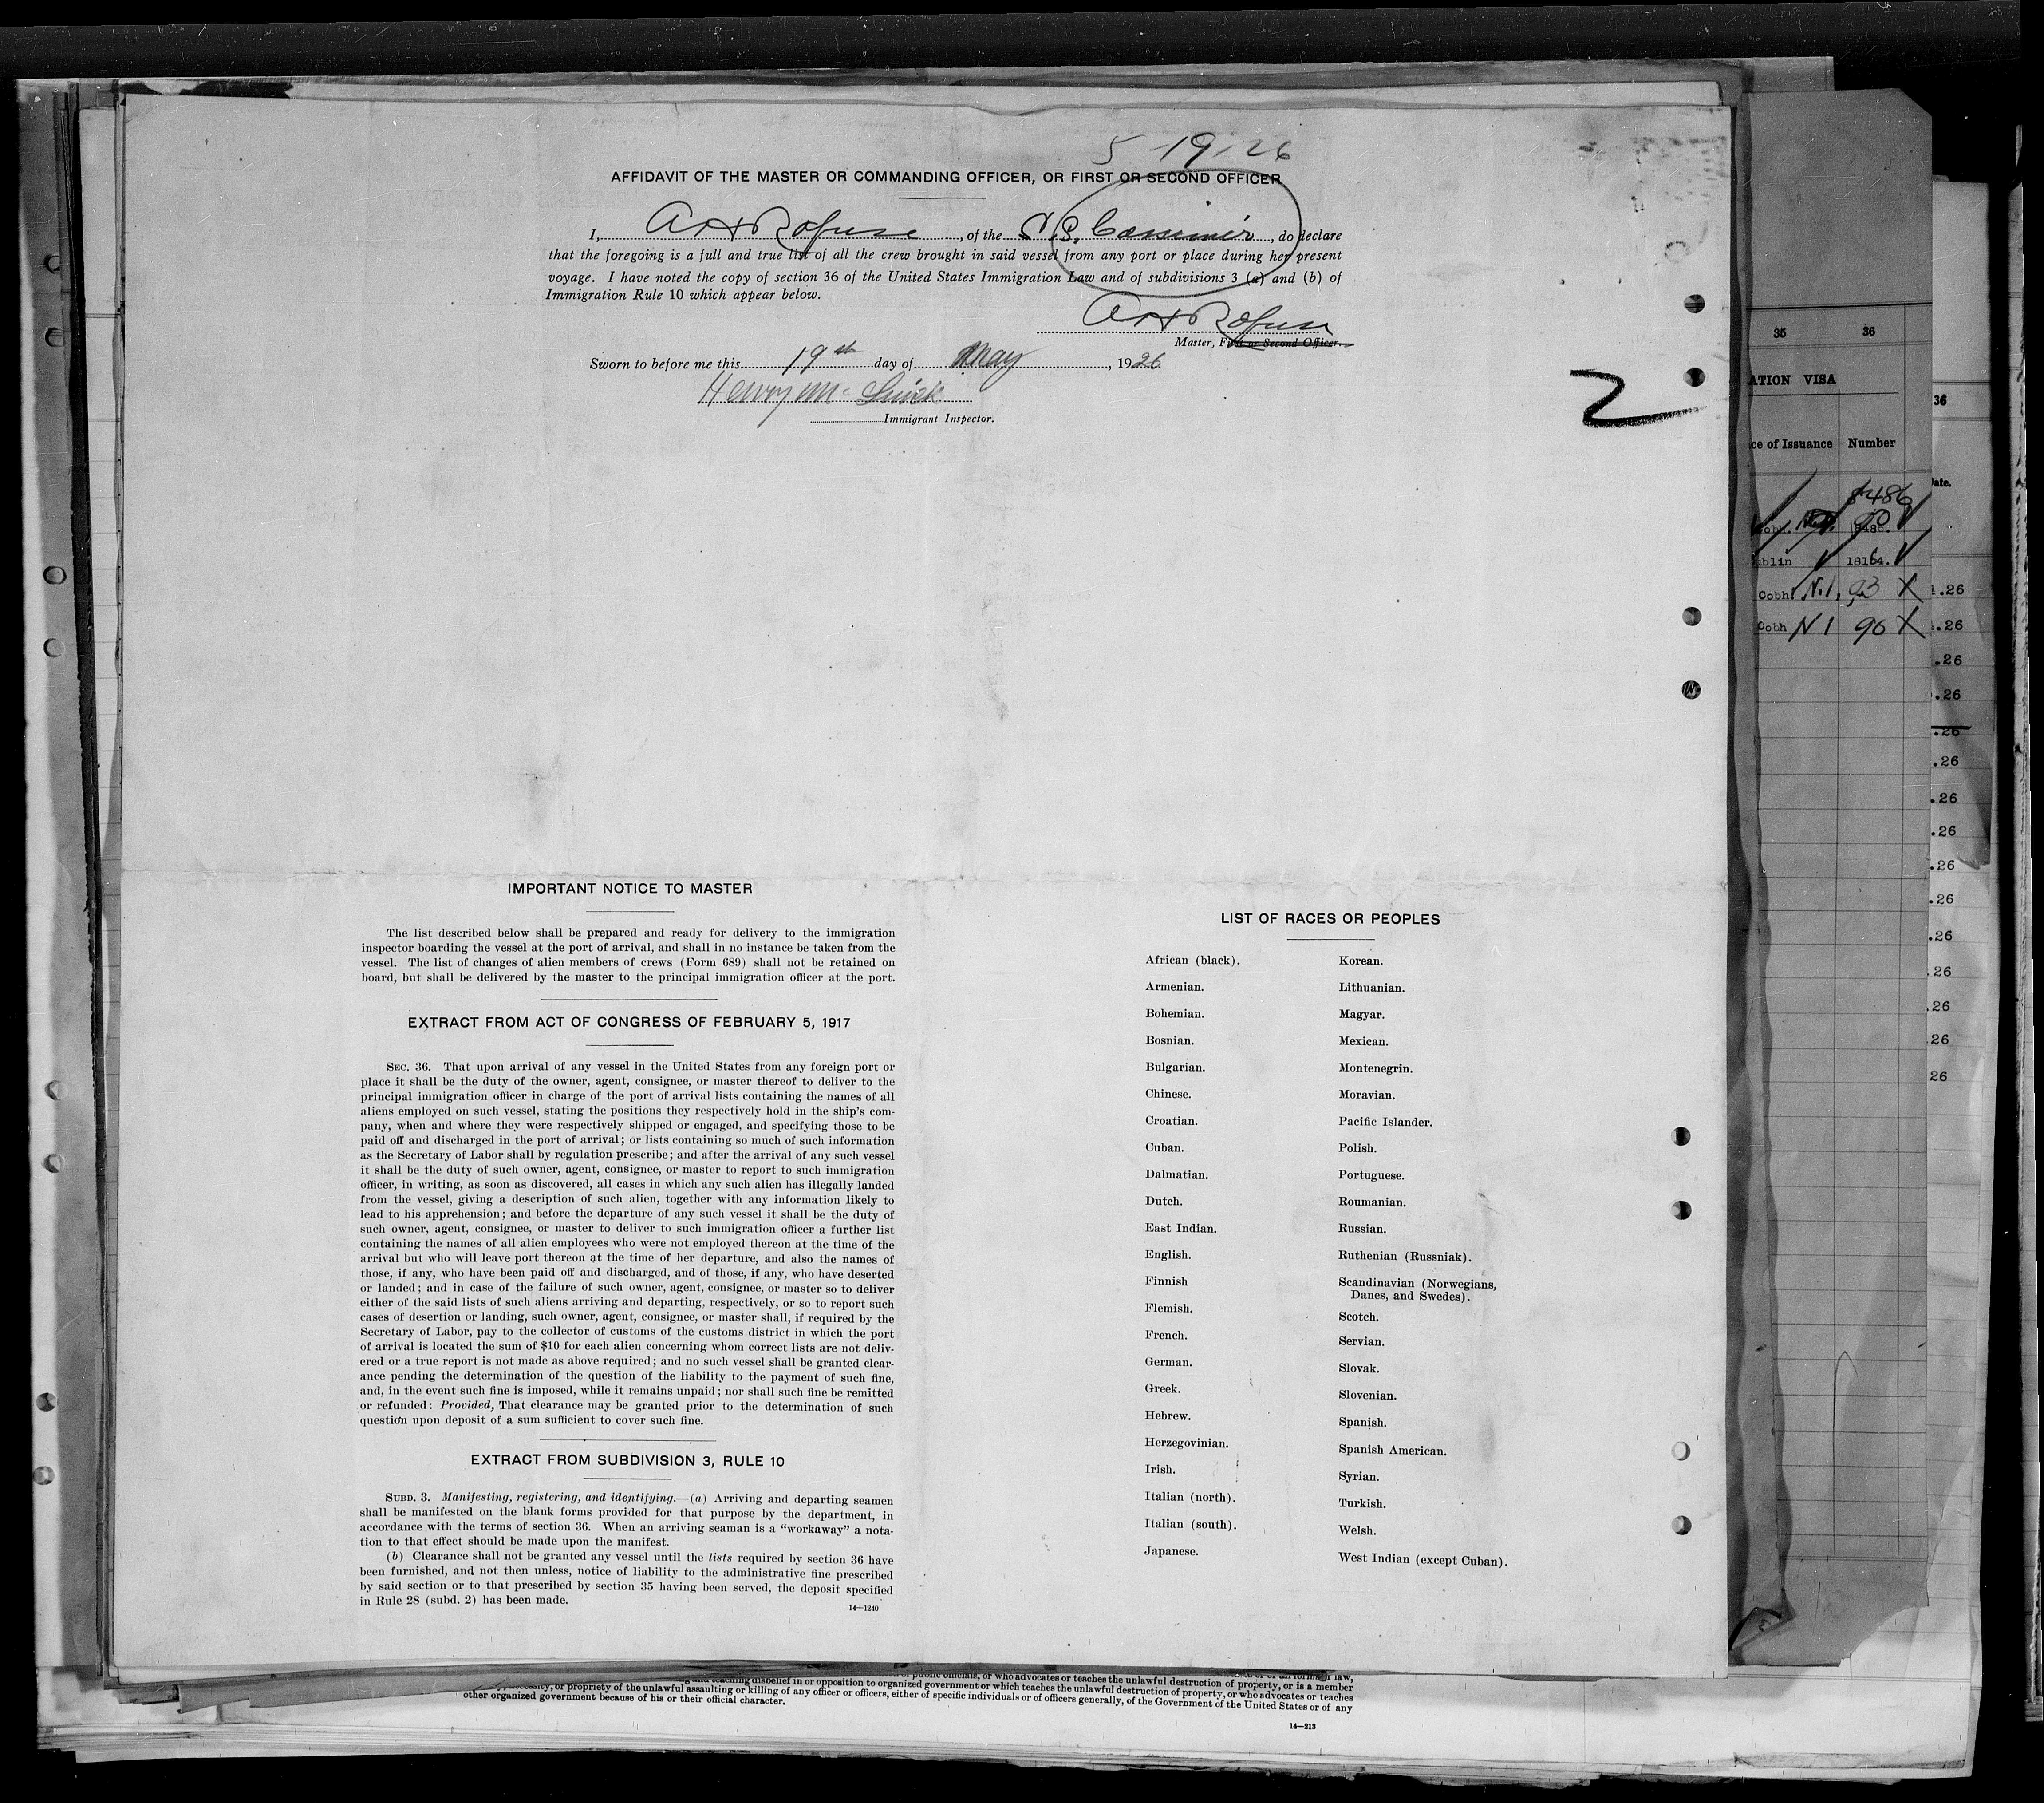 5-19-26
AFFIDAVIT OF THE MASTER OR COMMANDING OFFICER, OR FIRST OR SECOND OFFICER
I, A H Rafuse, of the S.S. Cassimir, do declare
that the foregoing is a full and true list of all the crew brought in said vessel from any port or place during her present
voyage. I have noted the copy of section 36 of the United States Immigration Law and of subdivisions 3 (a) and (b) of
Immigration Rule 10 which appear below.
A H Rafuse
Master, First or Second Officer.
Sworn to before me this 19th day of May, 1926
Henry
Immigrant Inspector.
2
IMPORTANT NOTICE TO MASTER
The list described below shall be prepared and ready for delivery to the immigration
inspector boarding the vessel at the port of arrival, and shall in no instance be taken from the
vessel. The list of changes of alien members of crews (Form 689) shall not be retained on
board, but shall be delivered by the master to the principal immigration officer at the port.
EXTRACT FROM ACT OF CONGRESS OF FEBRUARY 5, 1917
SEC. 36. That upon arrival of any vessel in the United States from any foreign port or
place it shall be the duty of the owner, agent, consignee, or master thereof to deliver to the
principal immigration officer in charge of the port of arrival lists containing the names of all
aliens employed on such vessel, stating the positions they respectively hold in the ship's com-
pany, when and where they were respectively shipped or engaged, and specifying those to be
paid off and discharged in the port of arrival; or lists containing so much of such information
as the Secretary of Labor shall by regulation prescribe; and after the arrival of any such vessel
it shall be the duty of such owner, agent, consignee, or master to report to such immigration
officer, in writing, as soon as discovered, all cases in which any such alien has illegally landed
from the vessel, giving a description of such alien, together with any information likely to
lead to his apprehension; and before the departure of any such vessel it shall be the duty of
such owner, agent, consignee, or master to deliver to such immigration officer a further list
containing the names of all alien employees who were not employed thereon at the time of the
arrival but who will leave port thereon at the time of her departure, and also the names of
those, if any, who have been paid off and discharged, and of those, if any, who have deserted
or landed; and in case of the failure of such owner, agent, consignee, or master so to deliver
either of the said lists of such aliens arriving and departing, respectively, or so to report such
cases of desertion or landing, such owner, agent, consignee, or master shall, if required by the
Secretary of Labor, pay to the collector of customs of the customs district in which the port
of arrival is located the sum of $10 for each alien concerning whom correct lists are not deliv-
ered or a true report is not made as above required; and no such vessel shall be granted clear-
ance pending the determination of the question of the liability to the payment of such fine,
and, in the event such fine is imposed, while it remains unpaid; nor shall such fine be remitted
or refunded: Provided, That clearance may be granted prior to the determination of such
question upon deposit of a sum sufficient to cover such fine.
EXTRACT FROM SUBDIVISION 3, RULE 10
SUBD. 3. Manifesting, registering, and identifying.—(a) Arriving and departing seamen
shall be manifested on the blank forms provided for that purpose by the department, in
accordance with the terms of section 36. When an arriving seaman is a "workaway" a nota-
tion to that effect should be made upon the manifest.
(b) Clearance shall not be granted any vessel until the lists required by section 36 have
been furnished, and not then unless, notice of liability to the administrative fine prescribed
by said section or to that prescribed by section 35 having been served, the deposit specified
in Rule 28 (subd. 2) has been made.
14—1240
LIST OF RACES OR PEOPLES
African (black).
Armenian.
Bohemian.
Bosnian.
Bulgarian.
Chinese.
Croatian.
Cuban.
Dalmatian.
Dutch.
East Indian.
English.
Finnish
Flemish.
French.
German.
Greek.
Hebrew.
Herzegovinian.
Irish.
Italian (north).
Italian (south).
Japanese.
Korean.
Lithuanian.
Magyar.
Mexican.
Montenegrin.
Moravian.
Pacific Islander.
Polish.
Portuguese.
Roumanian.
Russian.
Ruthenian (Russniak).
Scandinavian (Norwegians,
Danes, and Swedes).
Scotch.
Servian.
Slovak.
Slovenian.
Spanish.
Spanish American.
Syrian.
Turkish.
Welsh.
West Indian (except Cuban).
35 36
ATION VISA
ce of Issuance Number
8486
blin 18164.
Cobh N.1, 93 X
Cobh N 1 96 X
36
ate.
.26
.26
.26
.26
.26
.26
.26
.26
.26
.26
.26
.26
.26
26
26
teaching disbelief in or opposition to organized government or which teaches the unlawful destruction of property, or is a member
or propriety of the unlawful assaulting or killing of any officer or officers, either of specific individuals or of officers generally, of the Government of the United States or of any
other organized government because of his or their official character.
14—213